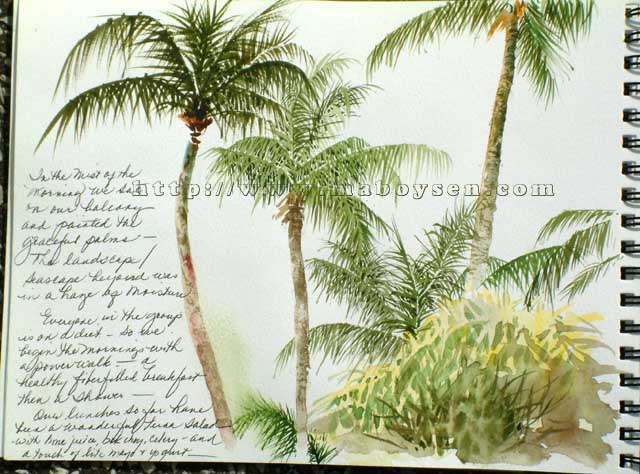 In the Mist of the
Morning we sat
on our balcony
and painted the
graceful palms —
The landscape/
seascape beyond was
in a haze of moisture
Everyone in the group
is on a diet — so we
began the mornings with
a power walk — a
healthy fiberfilled breakfast
then a shower —
Our lunches so far have
been a wonderful Tuna Salad
with lime juice, bok choy, celery — and
a touch of lite mayo + yogurt